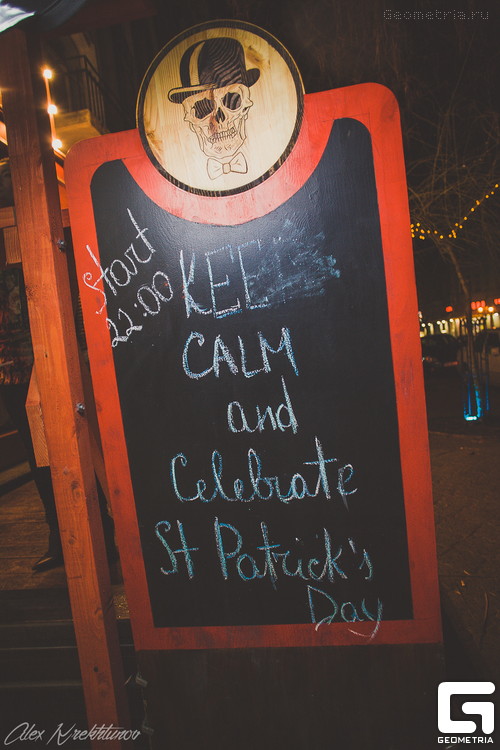 Geometria.ru
Start
22.00
KEE
CALM
and
Celebrate
St Patrick's
Day
GEOMETRIA